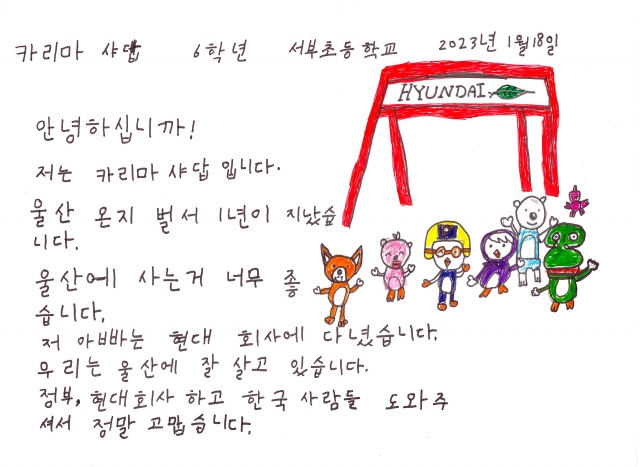 카리마 샤답 6학년 서부초등학교 2023년 1월 18일
HYUNDAI
안녕하십니까!
저는 카리마 샤답 입니다.
울산 온지 벌서 1년이 지났습
니다.
울산에 사는거 너무 좋
습니다.
저 아빠는 현대 회사에 다녔습니다.
우리는 울산에 잘 살고 있습니다.
정부, 현대회사 하고 한국 사람들 도와주
셔서 정말 고맙습니다.